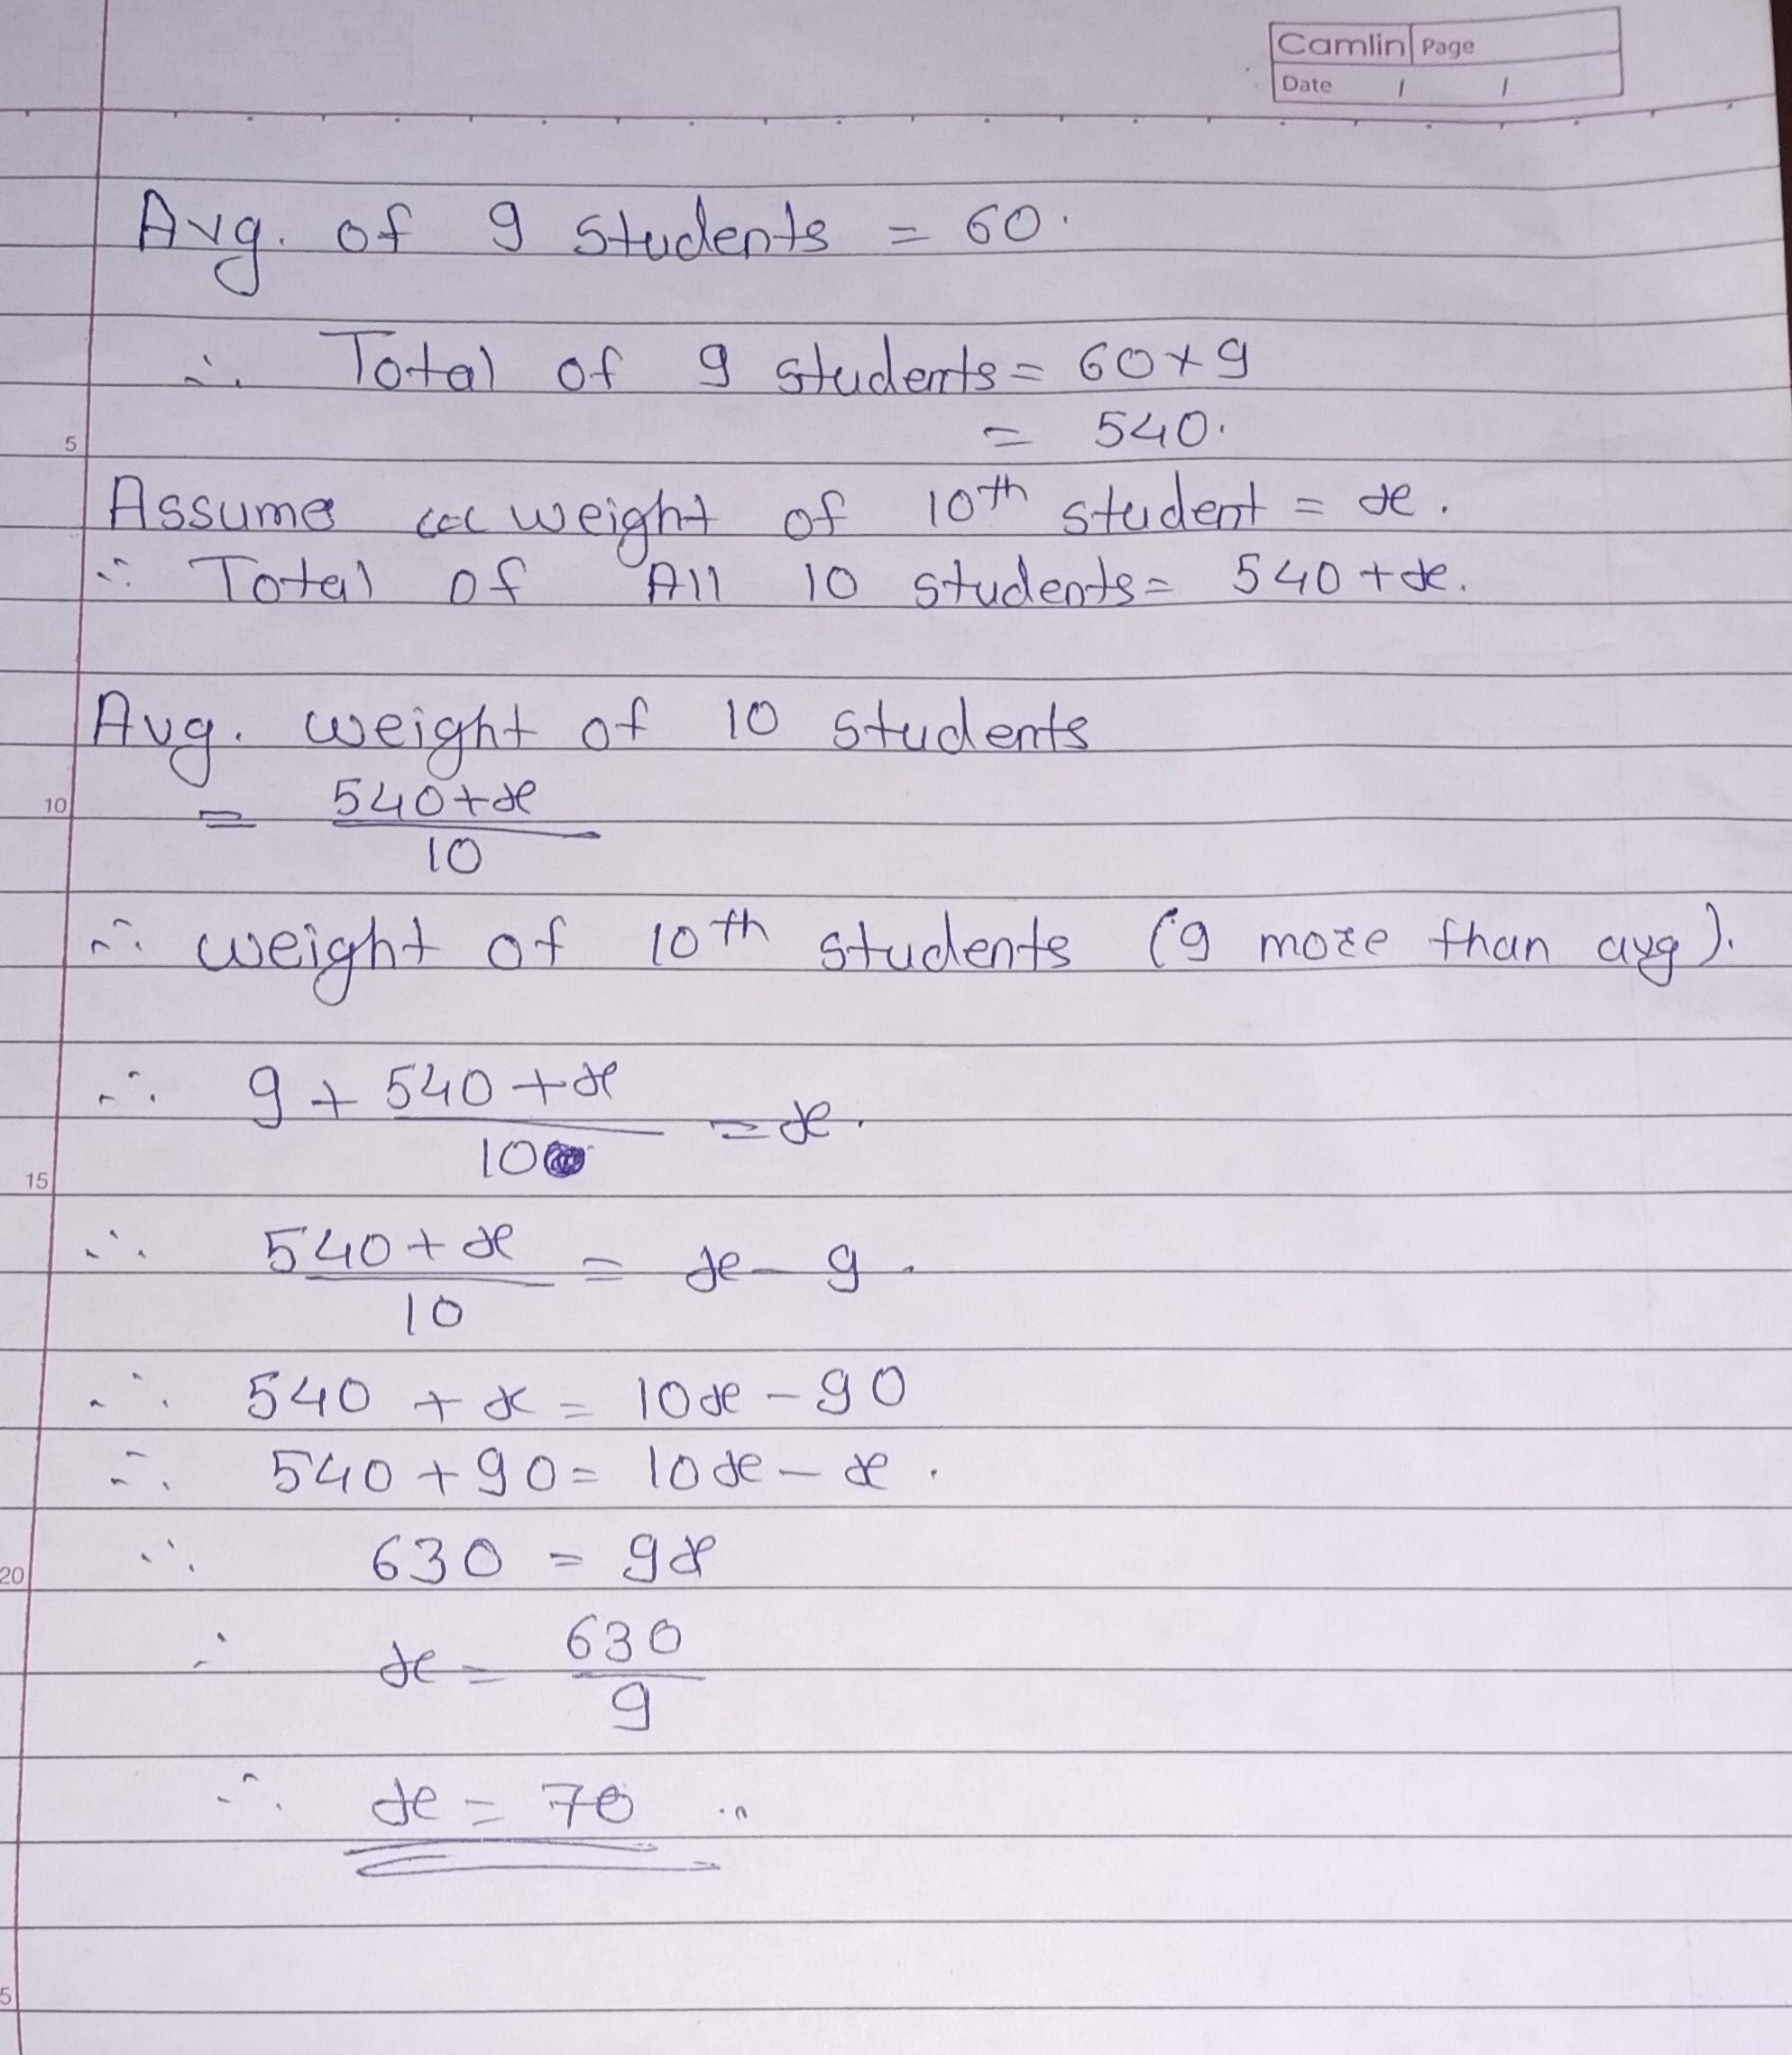 Camlin Page
Date / /
Avg. of 9 students = 60.
∴ Total of 9 students = 60 × 9
= 540.
Assume weight of 10th student = x.
∴ Total of All 10 students = 540 + x.
Avg. weight of 10 students
= 540 + x / 10
∴ weight of 10th students (9 more than avg).
∴ 9 + 540 + x / 10 = x.
∴ 540 + x / 10 = x - 9.
∴ 540 + x = 10x - 90
∴ 540 + 90 = 10x - x.
∴ 630 = 9x
∴ x = 630 / 9
∴ x = 70
5
10
15
20
5